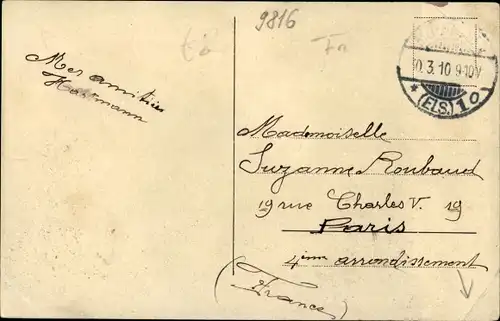 9816
0.3.10 9-10V
* (ELS.) 1 o
Mes amitiés
Hartmann
Mademoiselle
Suzanne Roubaud
19 rue Charles V. 19
Paris
4ème arrondissement
(France)